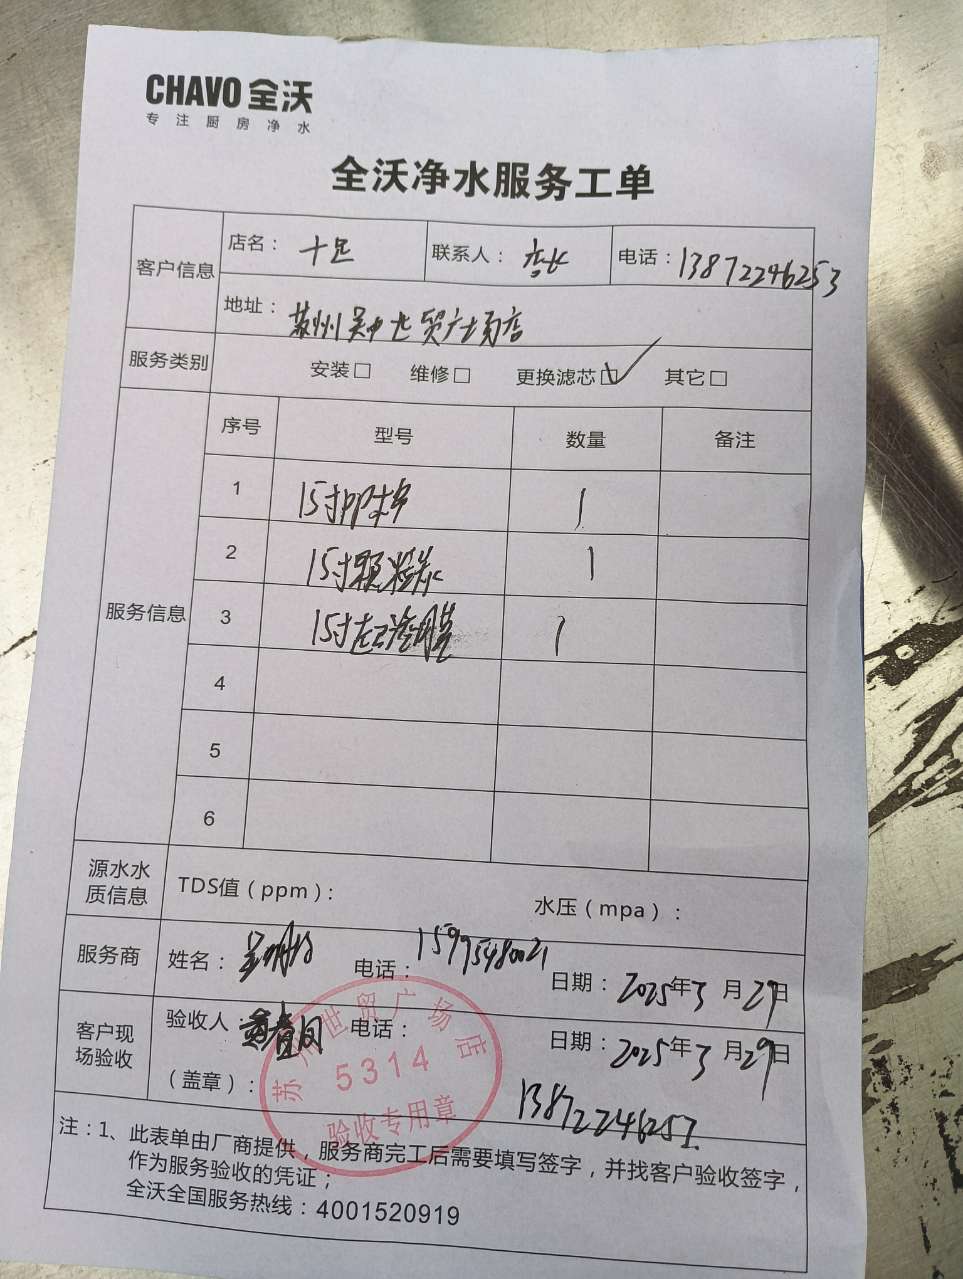 CHAVO 全沃
专注厨房净水
全沃净水服务工单
客户信息 店名： 十足 联系人： 店长 电话：13872246253
地址： 苏州吴中世贸广场店
服务类别 安装□ 维修□ 更换滤芯☑ 其它□
服务信息 序号 型号 数量 备注
1 15寸PP棉 1
2 15寸颗粒炭 1
3 15寸 1
4
5
6
源水水质信息 TDS值（ppm）： 水压（mpa）：
服务商 姓名： 电话： 日期：2025年3月29日
客户现场验收 验收人： 电话： 日期：2025年3月29日
（盖章）： 1387224625
苏州世贸广场店
5314
验收专用章
注：1、此表单由厂商提供，服务商完工后需要填写签字，并找客户验收签字，
作为服务验收的凭证；
全沃全国服务热线：4001520919